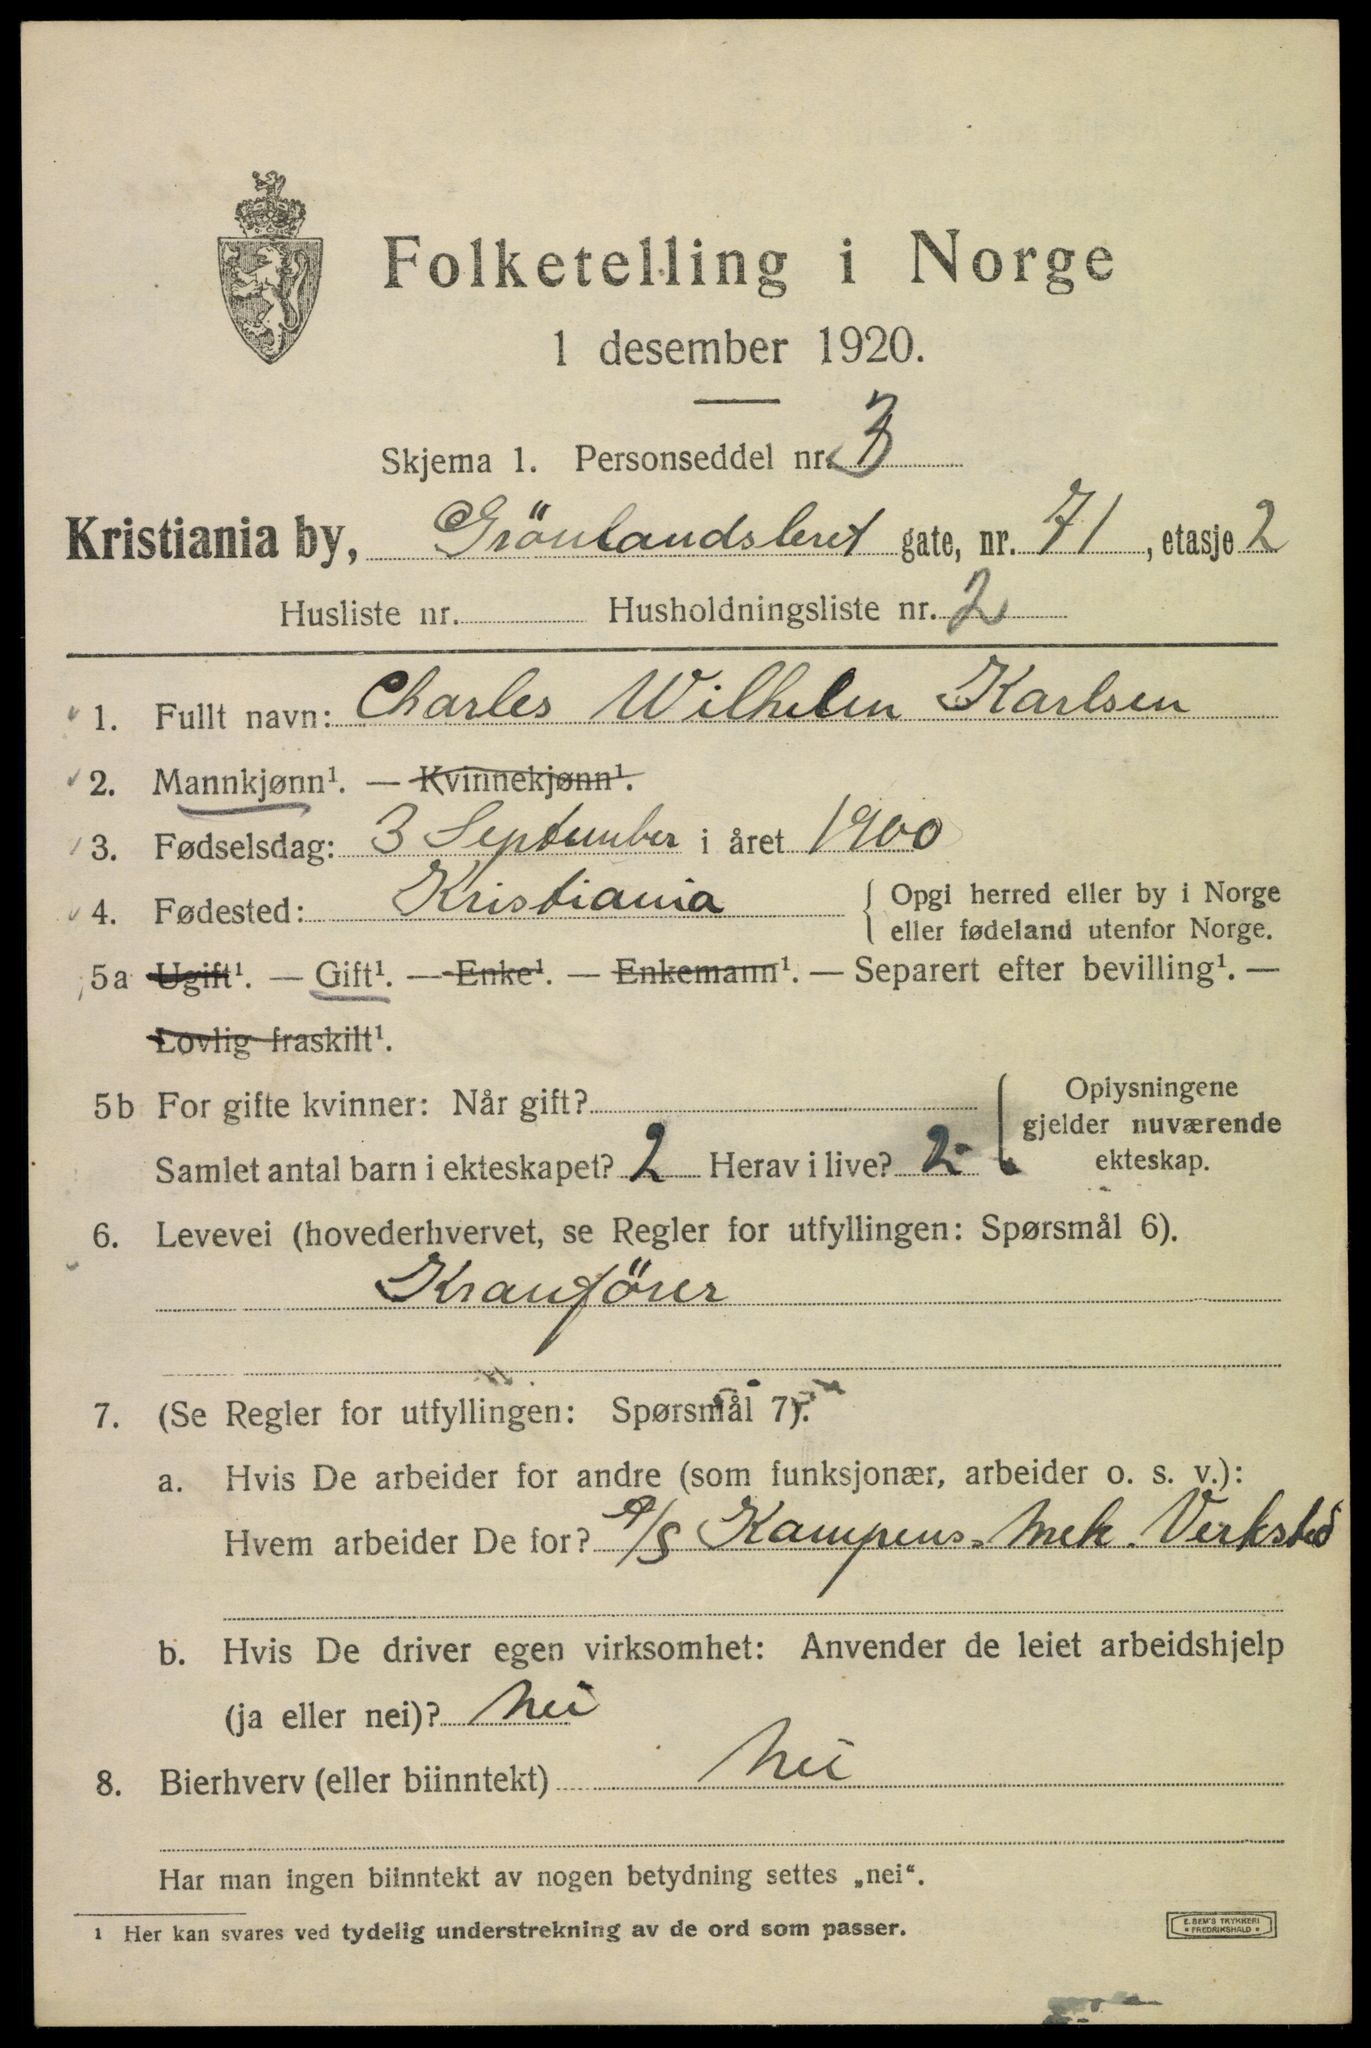 Folketelling i Norge
1 desember 1920.
Skjema 1. Personseddel nr. 3
Kristiania by, Grönlandsleret gate, nr. 71, etasje 2
Husliste nr. Husholdningsliste nr. 2
1. Fullt navn: Charles Wilhelm Karlsen
2. Mannkjønn¹. — Kvinnekjønn¹.
3. Fødselsdag: 3 September i året 1900
4. Fødested: Kristiania { Opgi herred eller by i Norge
eller fødeland utenfor Norge.
5a Ugift¹. — Gift¹. — Enke¹. — Enkemann¹. — Separert efter bevilling¹. —
Lovlig fraskilt¹.
5b For gifte kvinner: Når gift?
Samlet antal barn i ekteskapet? 2 Herav i live? 2
Oplysningene
gjelder nuværende
ekteskap.
6. Levevei (hovederhvervet, se Regler for utfyllingen: Spørsmål 6).
Kranförer
7. (Se Regler for utfyllingen: Spørsmål 7).
a. Hvis De arbeider for andre (som funksjonær, arbeider o. s. v.):
Hvem arbeider De for? A/S Kampens Mek. Verksted
b. Hvis De driver egen virksomhet: Anvender de leiet arbeidshjelp
(ja eller nei)? Nei
8. Bierhverv (eller biinntekt) Nei
Har man ingen biinntekt av nogen betydning settes „nei“.
1 Her kan svares ved tydelig understrekning av de ord som passer.
E. SEM'S TRYKKERI
* FREDRIKSHALD *